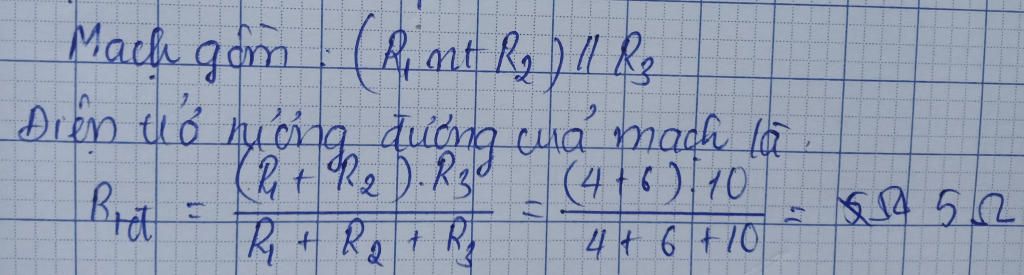 Mạch gồm : (R₁ nt R₂) // R₃
Điện trở tương đương của mạch là.
Rtđ = (R₁ + R₂).R₃ / (R₁ + R₂ + R₃) = (4+6).10 / (4+6+10) = 5Ω